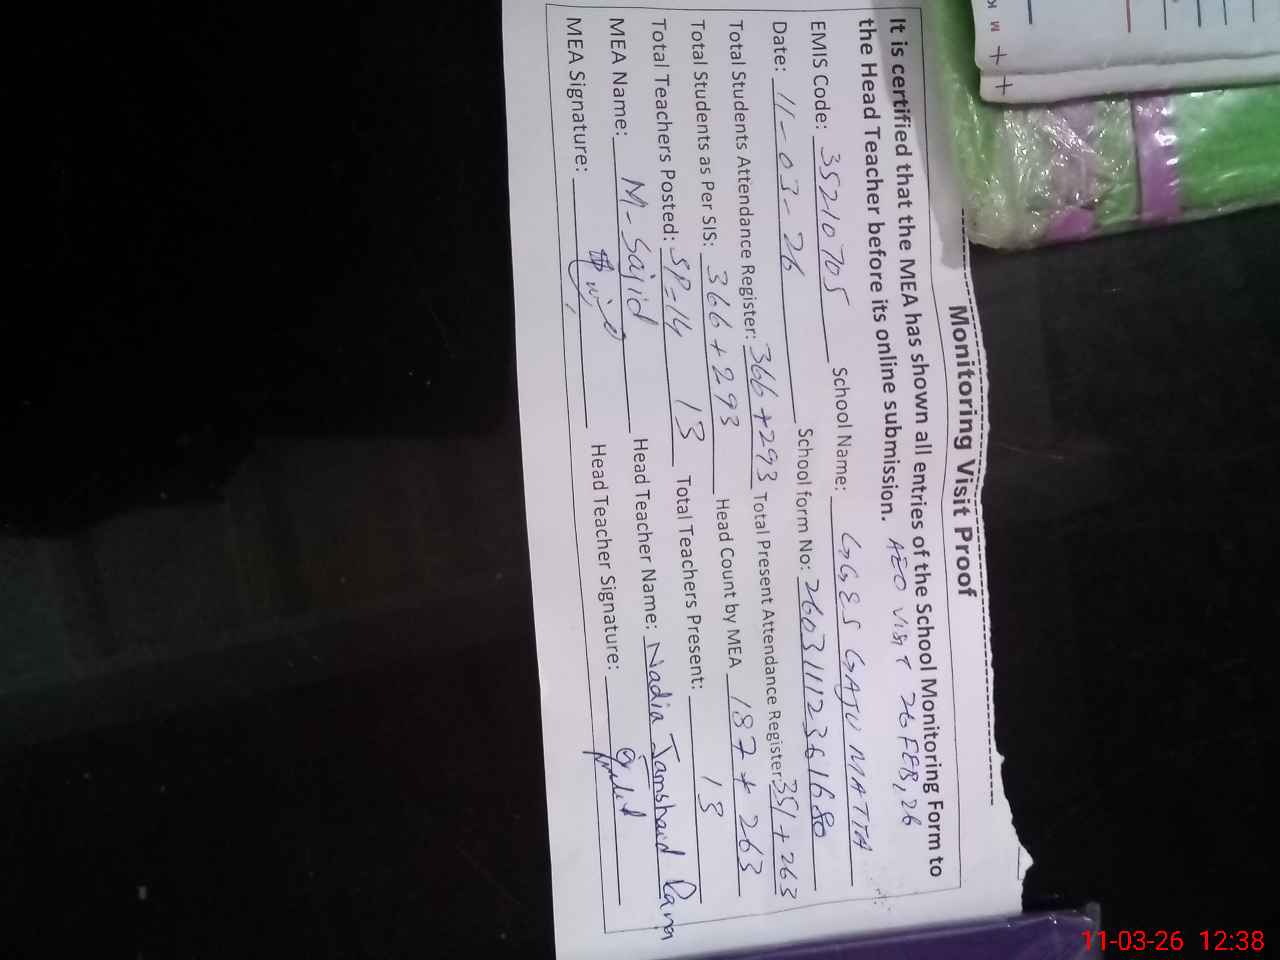 Monitoring Visit Proof
It is certified that the MEA has shown all entries of the School Monitoring Form to
the Head Teacher before its online submission. AEO VISIT 26 FEB, 26
EMIS Code: 35210705 School Name: GGES GAJU MATTA
Date: 11-03-26 School form No: 2603111236168
Total Students Attendance Register: 366+293 Total Present Attendance Register: 351+263
Total Students as Per SIS: 366+293 Head Count by MEA 187+263
Total Teachers Posted: SP=14 13 Total Teachers Present: 13
MEA Name: M-Sajid Head Teacher Name: Nadia Jamshaid Rana
MEA Signature: Head Teacher Signature:
11-03-26 12:38